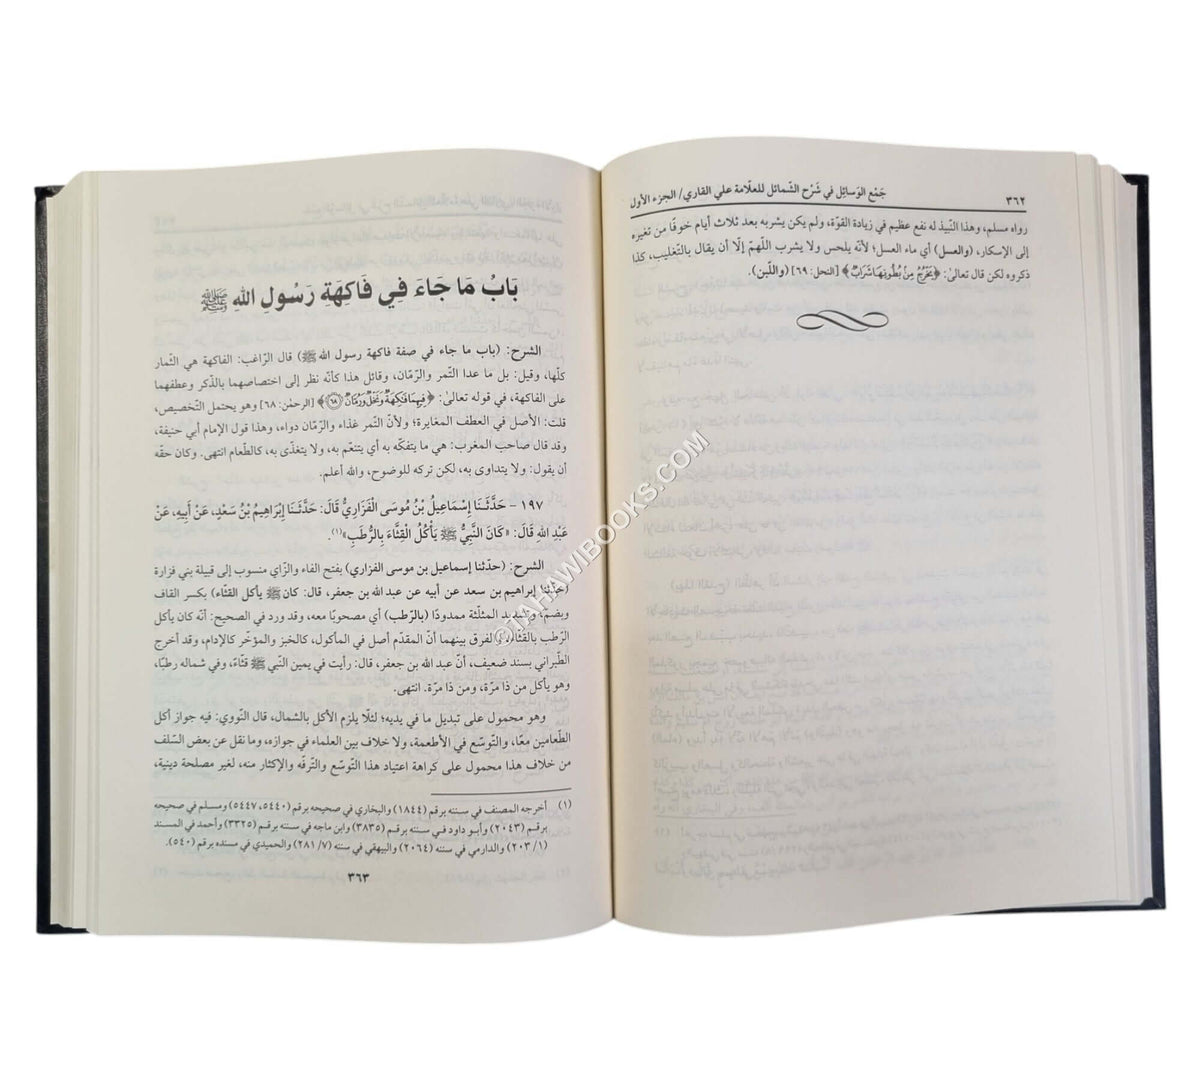 ٣٦٢ جَمْع الوَسائِل في شَرْح الشّمائل للعلّامة علي القاري/ الجزء الأول
رواه مسلم، وهذا النّبيذ له نفع عظيم في زيادة القوّة، ولم يكن يشربه بعد ثلاث أيام خوفًا من تغيره
إلى الإسكار، (والعسل) أي ماء العسل؛ لأنّه يلحس ولا يشرب اللّهمّ إلّا أن يقال بالتّغليب، كذا
ذكروه لكن قال تعالىٰ: ﴿يَخْرُجُ مِنْ بُطُونِهَا شَرَابٌ﴾ [النحل: ٦٩] (واللّبن).
بَابُ مَا جَاءَ فِي فَاكِهَةِ رَسُولِ اللهِ ﷺ
الشرح: (باب ما جاء في صفة فاكهة رسول الله ﷺ) قال الرّاغب: الفاكهة هي الثّمار
كلّها، وقيل: بل ما عدا التّمر والرّمّان، وقائل هذا كأنّه نظر إلى اختصاصهما بالذّكر وعطفهما
على الفاكهة، في قوله تعالىٰ: ﴿فِيهِمَا فَاكِهَةٌ وَنَخْلٌ وَرُمَّانٌ ۝٦٨﴾ [الرحمٰن: ٦٨] وهو يحتمل التّخصيص،
قلت: الأصل في العطف المغايرة؛ ولأنّ التّمر غذاء والرّمّان دواء، وهذا قول الإمام أبي حنيفة،
وقد قال صاحب المغرب: هي ما يتفكّه به أي يتنعّم به، ولا يتغذّى به، كالطّعام انتهى. وكان حقّه
أن يقول: ولا يتداوى به، لكن تركه للوضوح، والله أعلم.
١٩٧ - حَدَّثَنَا إِسْمَاعِيلُ بْنُ مُوسَى الْفَزَارِيُّ قَالَ: حَدَّثَنَا إِبْرَاهِيمُ بْنُ سَعْدٍ، عَنْ أَبِيهِ، عَنْ
عَبْدِ اللهِ قَالَ: «كَانَ النَّبِيُّ ﷺ يَأْكُلُ الْقِثَّاءَ بِالرُّطَبِ»(١).
الشرح: (حدّثنا إسماعيل بن موسى الفزاري) بفتح الفاء والزّاي منسوب إلى قبيلة بني فزارة
(حدّثنا إبراهيم بن سعد عن أبيه عن عبد الله بن جعفر، قال: كان ﷺ يأكل القثّاء) بكسر القاف
وبضمّ، وتشديد المثلّثة ممدودًا (بالرّطب) أي مصحوبًا معه، وقد ورد في الصحيح: أنّه كان يأكل
الرّطب بالقثّاء، والفرق بينهما أنّ المقدّم أصل في المأكول، كالخبز والمؤخّر كالإدام، وقد أخرج
الطّبراني بسند ضعيف، أنّ عبد الله بن جعفر، قال: رأيت في يمين النّبي ﷺ قثّاءً، وفي شماله رطبًا،
وهو يأكل من ذا مرّة، ومن ذا مرّة. انتهى.
وهو محمول على تبديل ما في يديه؛ لئلّا يلزم الأكل بالشمال، قال النّووي: فيه جواز أكل
الطّعامين معًا، والتّوسّع في الأطعمة، ولا خلاف بين العلماء في جوازه، وما نقل عن بعض السّلف
من خلاف هذا محمول على كراهة اعتياد هذا التّوسّع والتّرفّه والإكثار منه، لغير مصلحة دينية،
(١) أخرجه المصنف في سننه برقم (١٨٤٤) والبخاري في صحيحه برقم (٥٤٤٠، ٥٤٤٧) ومسلم في صحيحه
برقم (٢٠٤٣) وأبو داود في سننه برقم (٣٨٣٥) وابن ماجه في سننه برقم (٣٣٢٥) وأحمد في المسند
(٢٠٣/١) والدارمي في سننه (٢٠٦٤) والبيهقي في سننه (٢٨١/٧) والحميدي في مسنده برقم (٥٤٠).
٣٦٣
©TAHAWIBOOKS.COM